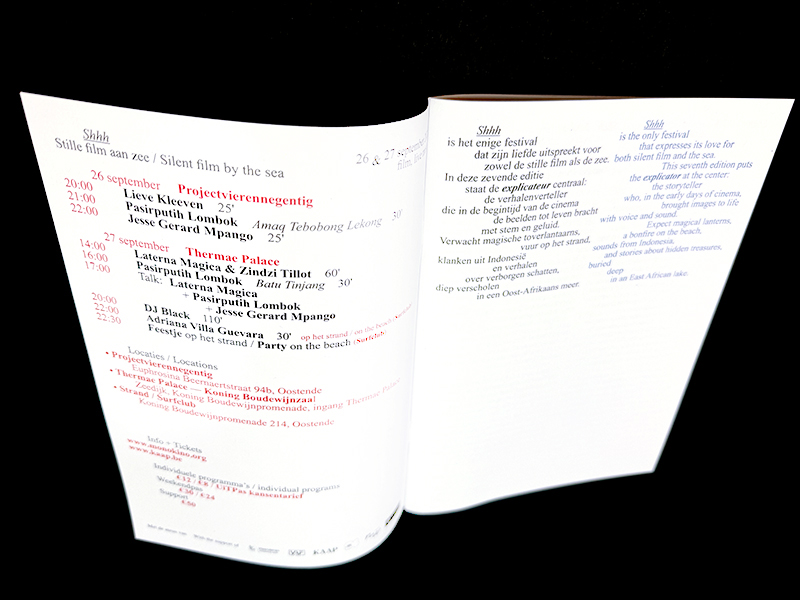 Shhh
Stille film aan zee / Silent film by the sea
26 & 27 september
26 september Projectvierennegentig
20:00 Lieve Kleeven 25'
21:00 Pasirputih Lombok Amaq Tebobong Lekong 30'
22:00 Jesse Gerard Mpango 25'
27 september Thermae Palace
14:00 Laterna Magica & Zindzi Tillot 60'
16:00 Pasirputih Lombok Batu Tinjang 30'
17:00 Talk: Laterna Magica
+ Pasirputih Lombok
+ Jesse Gerard Mpango
20:00 DJ Black 110'
22:00 Adriana Villa Guevara 30' op het strand / on the beach
22:30 Feestje op het strand / Party on the beach (Surfclub)
Locaties / Locations
• Projectvierennegentig
Euphrosina Beernaertstraat 94b, Oostende
• Thermae Palace — Koning Boudewijnzaal
Zeedijk, Koning Boudewijnpromenade, ingang Thermae Palace
• Strand / Surfclub
Koning Boudewijnpromenade 214, Oostende
Info + Tickets
www.monokino.org
www.kaap.be
Individuele programma's / individual programs
€12 / €8 / UiTPas kansentarief
Weekendpas
€36 / €24
Support
€60
KAAP
Shhh
is het enige festival
dat zijn liefde uitspreekt voor
zowel de stille film als de zee.
In deze zevende editie
staat de explicateur centraal:
de verhalenverteller
die in de begintijd van de cinema
de beelden tot leven bracht
met stem en geluid.
Verwacht magische toverlantaarns,
vuur op het strand,
klanken uit Indonesië
en verhalen
over verborgen schatten,
diep verscholen
in een Oost-Afrikaans meer.
Shhh
is the only festival
that expresses its love for
both silent film and the sea.
This seventh edition puts
the explicator at the center:
the storyteller
who, in the early days of cinema,
brought images to life
with voice and sound.
Expect magical lanterns,
a bonfire on the beach,
sounds from Indonesia,
and stories about hidden treasures,
buried
deep
in an East African lake.